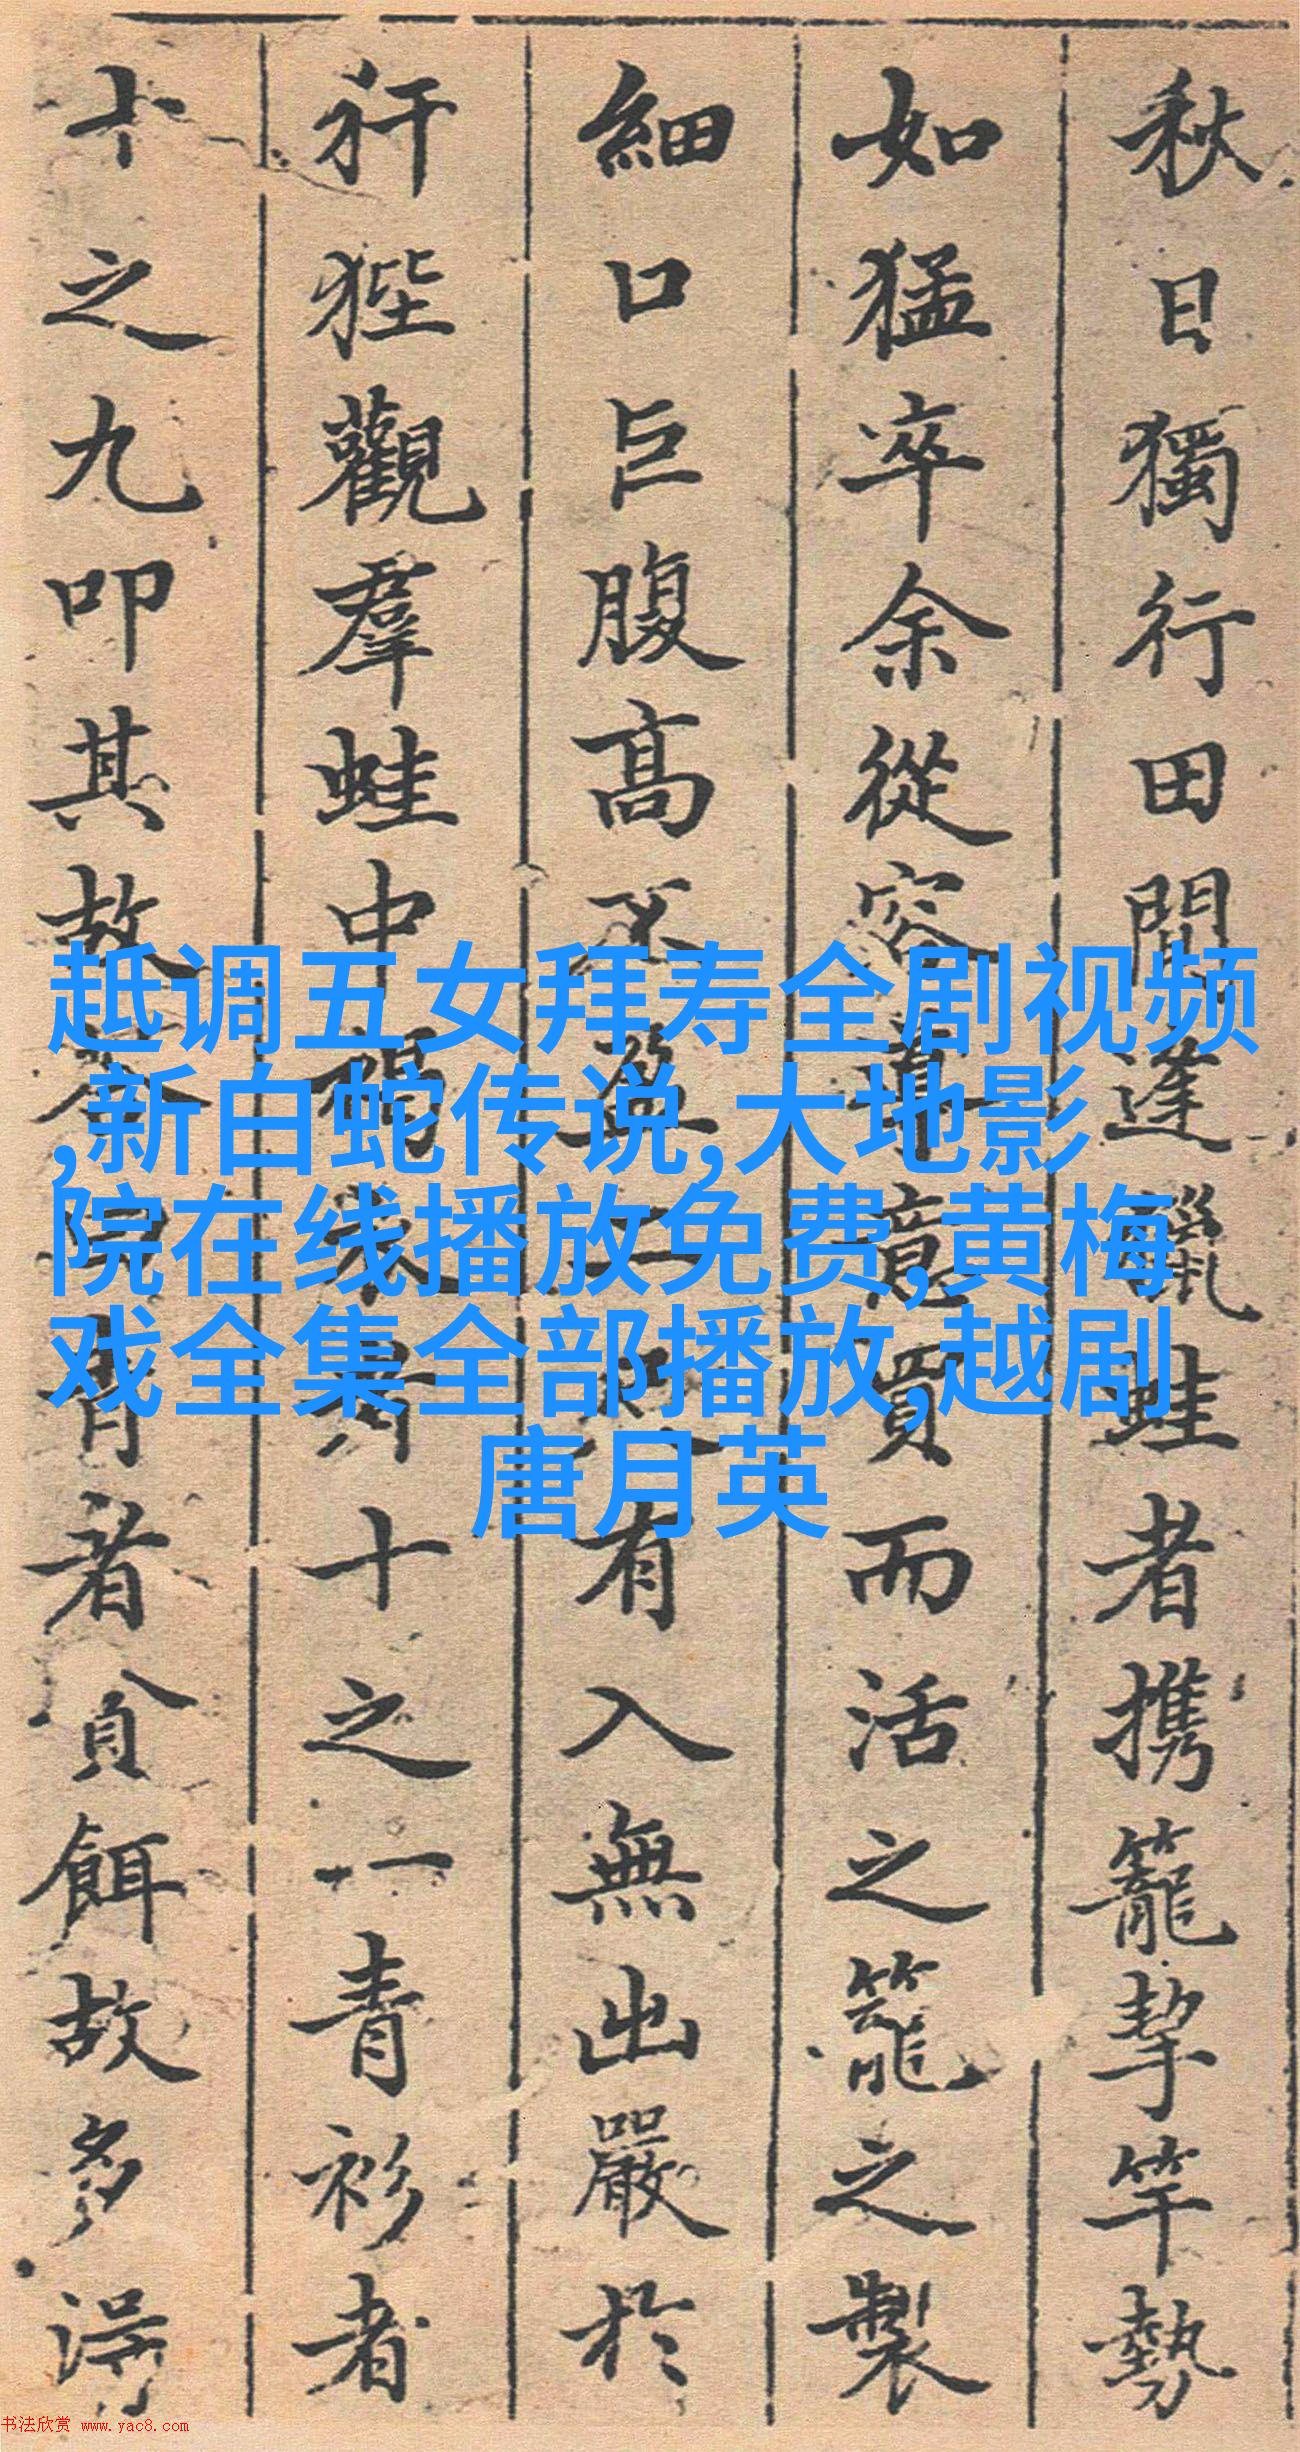 秋日獨行田間逢獵蛙者携籠挈竿勢
如猛卒余從容意買而活之籠之製
細口巨腹高不盈二尺有入無出嚴於
犴狴觀羣蛙中褐衣者十之一青衫者
十之九叩其故答曰青者貪餌故多得
趆调五女拜寿全剧视频
,新白蛇传说,大地影
院在线播放免费,黄梅
戏全集全部播放,越剧
唐月英
书法欣赏 www.yac8.com